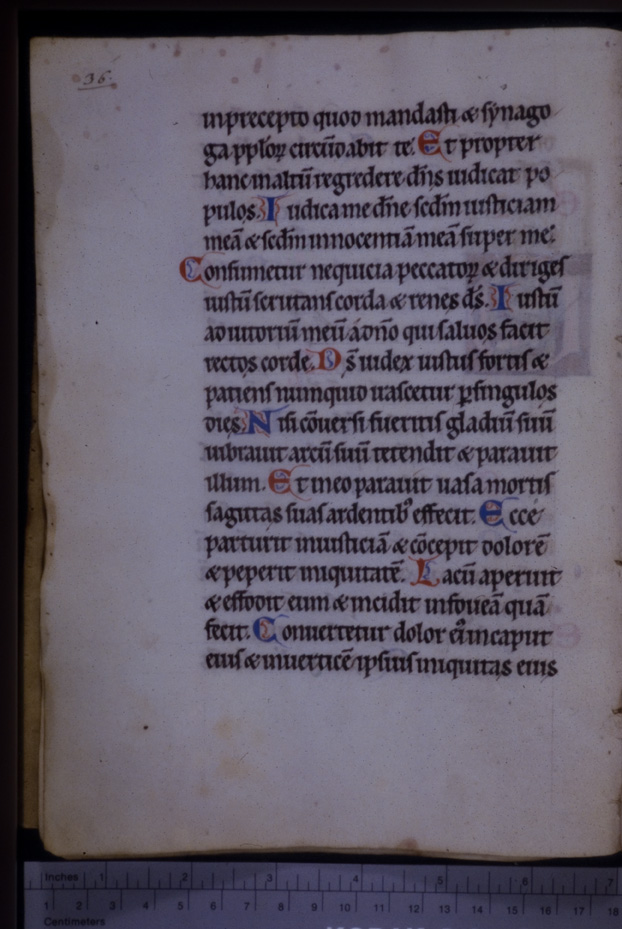 36.
inprecepto quod mandasti & synago
ga pploꝝ circũdabit te. Et propter
hanc inaltũ regredere dñs iudicat po
pulos. Iudica me dñe scdm iusticiam
meã & scdm innocentiã meã super me.
Consumetur nequicia peccatoꝝ & diriges
iustũ scrutans corda & renes ds̃. Iustũ
adiutoriũ meũ a dño qui saluos facit
rectos corde. Ds̃ iudex iustus fortis &
patiens nunquid irascetur ꝑ singulos
dies. Nisi cõuersi fueritis gladiũ suũ
uibrauit arcũ suũ tetendit & parauit
illum. Et in eo parauit uasa mortis
sagittas suas ardentibꝰ effecit. Ecce
parturit iniusticiã & cõcepit dolorẽ
& peperit iniquitatẽ. Lacũ aperuit
& effodit eum & incidit infoueã quã
fecit. Conuertetur dolor eiꝰ incaput
eius & inuerticẽ ipsius iniquitas eius
Inches 1 2 3 4 5 6 7
1 2 3 4 5 6 7 8 9 10 11 12 13 14 15 16 17 18
Centimeters